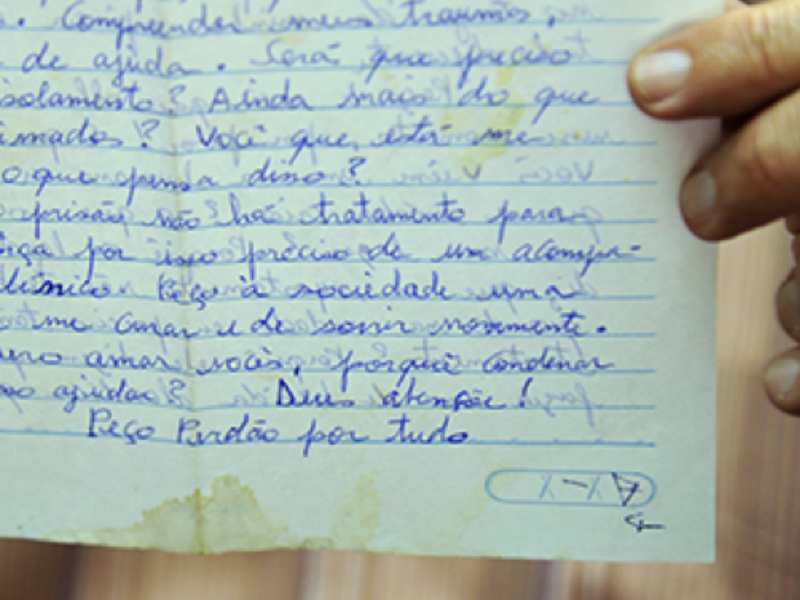 . Compreender meus traumas,
de ajuda. Será que preciso
isolamento? Ainda mais do que
imados? Você que está me
o que pensa disso?
prisão não há tratamento para
por isso preciso de um acompa-
línico Peço à sociedade uma
me curar e de sorrir novamente.
ero amar vocês, porquê condenar
ajudar? Deus atenção!
Peço Perdão por tudo